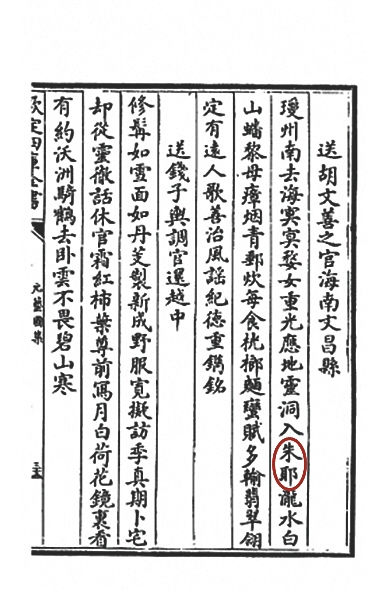 送胡文善之官海南文昌縣
瓊州南去海冥冥婺女重光應地靈洞入朱耶瀧水白
山蟠黎母瘴烟青郵炊每食桄榔麵蠻賦多輸翡翠翎
定有遠人歌善治風謡紀徳重鐫銘
送錢子輿調官還越中
修髯如雪面如丹芰製新成野服寬擬訪季真期卜宅
却從靈徹話休官霜紅柿葉尊前寫月白荷花鏡裏看
有約沃洲騎鶴去卧雲不畏碧山寒
欽定四庫全書
元藝圃集